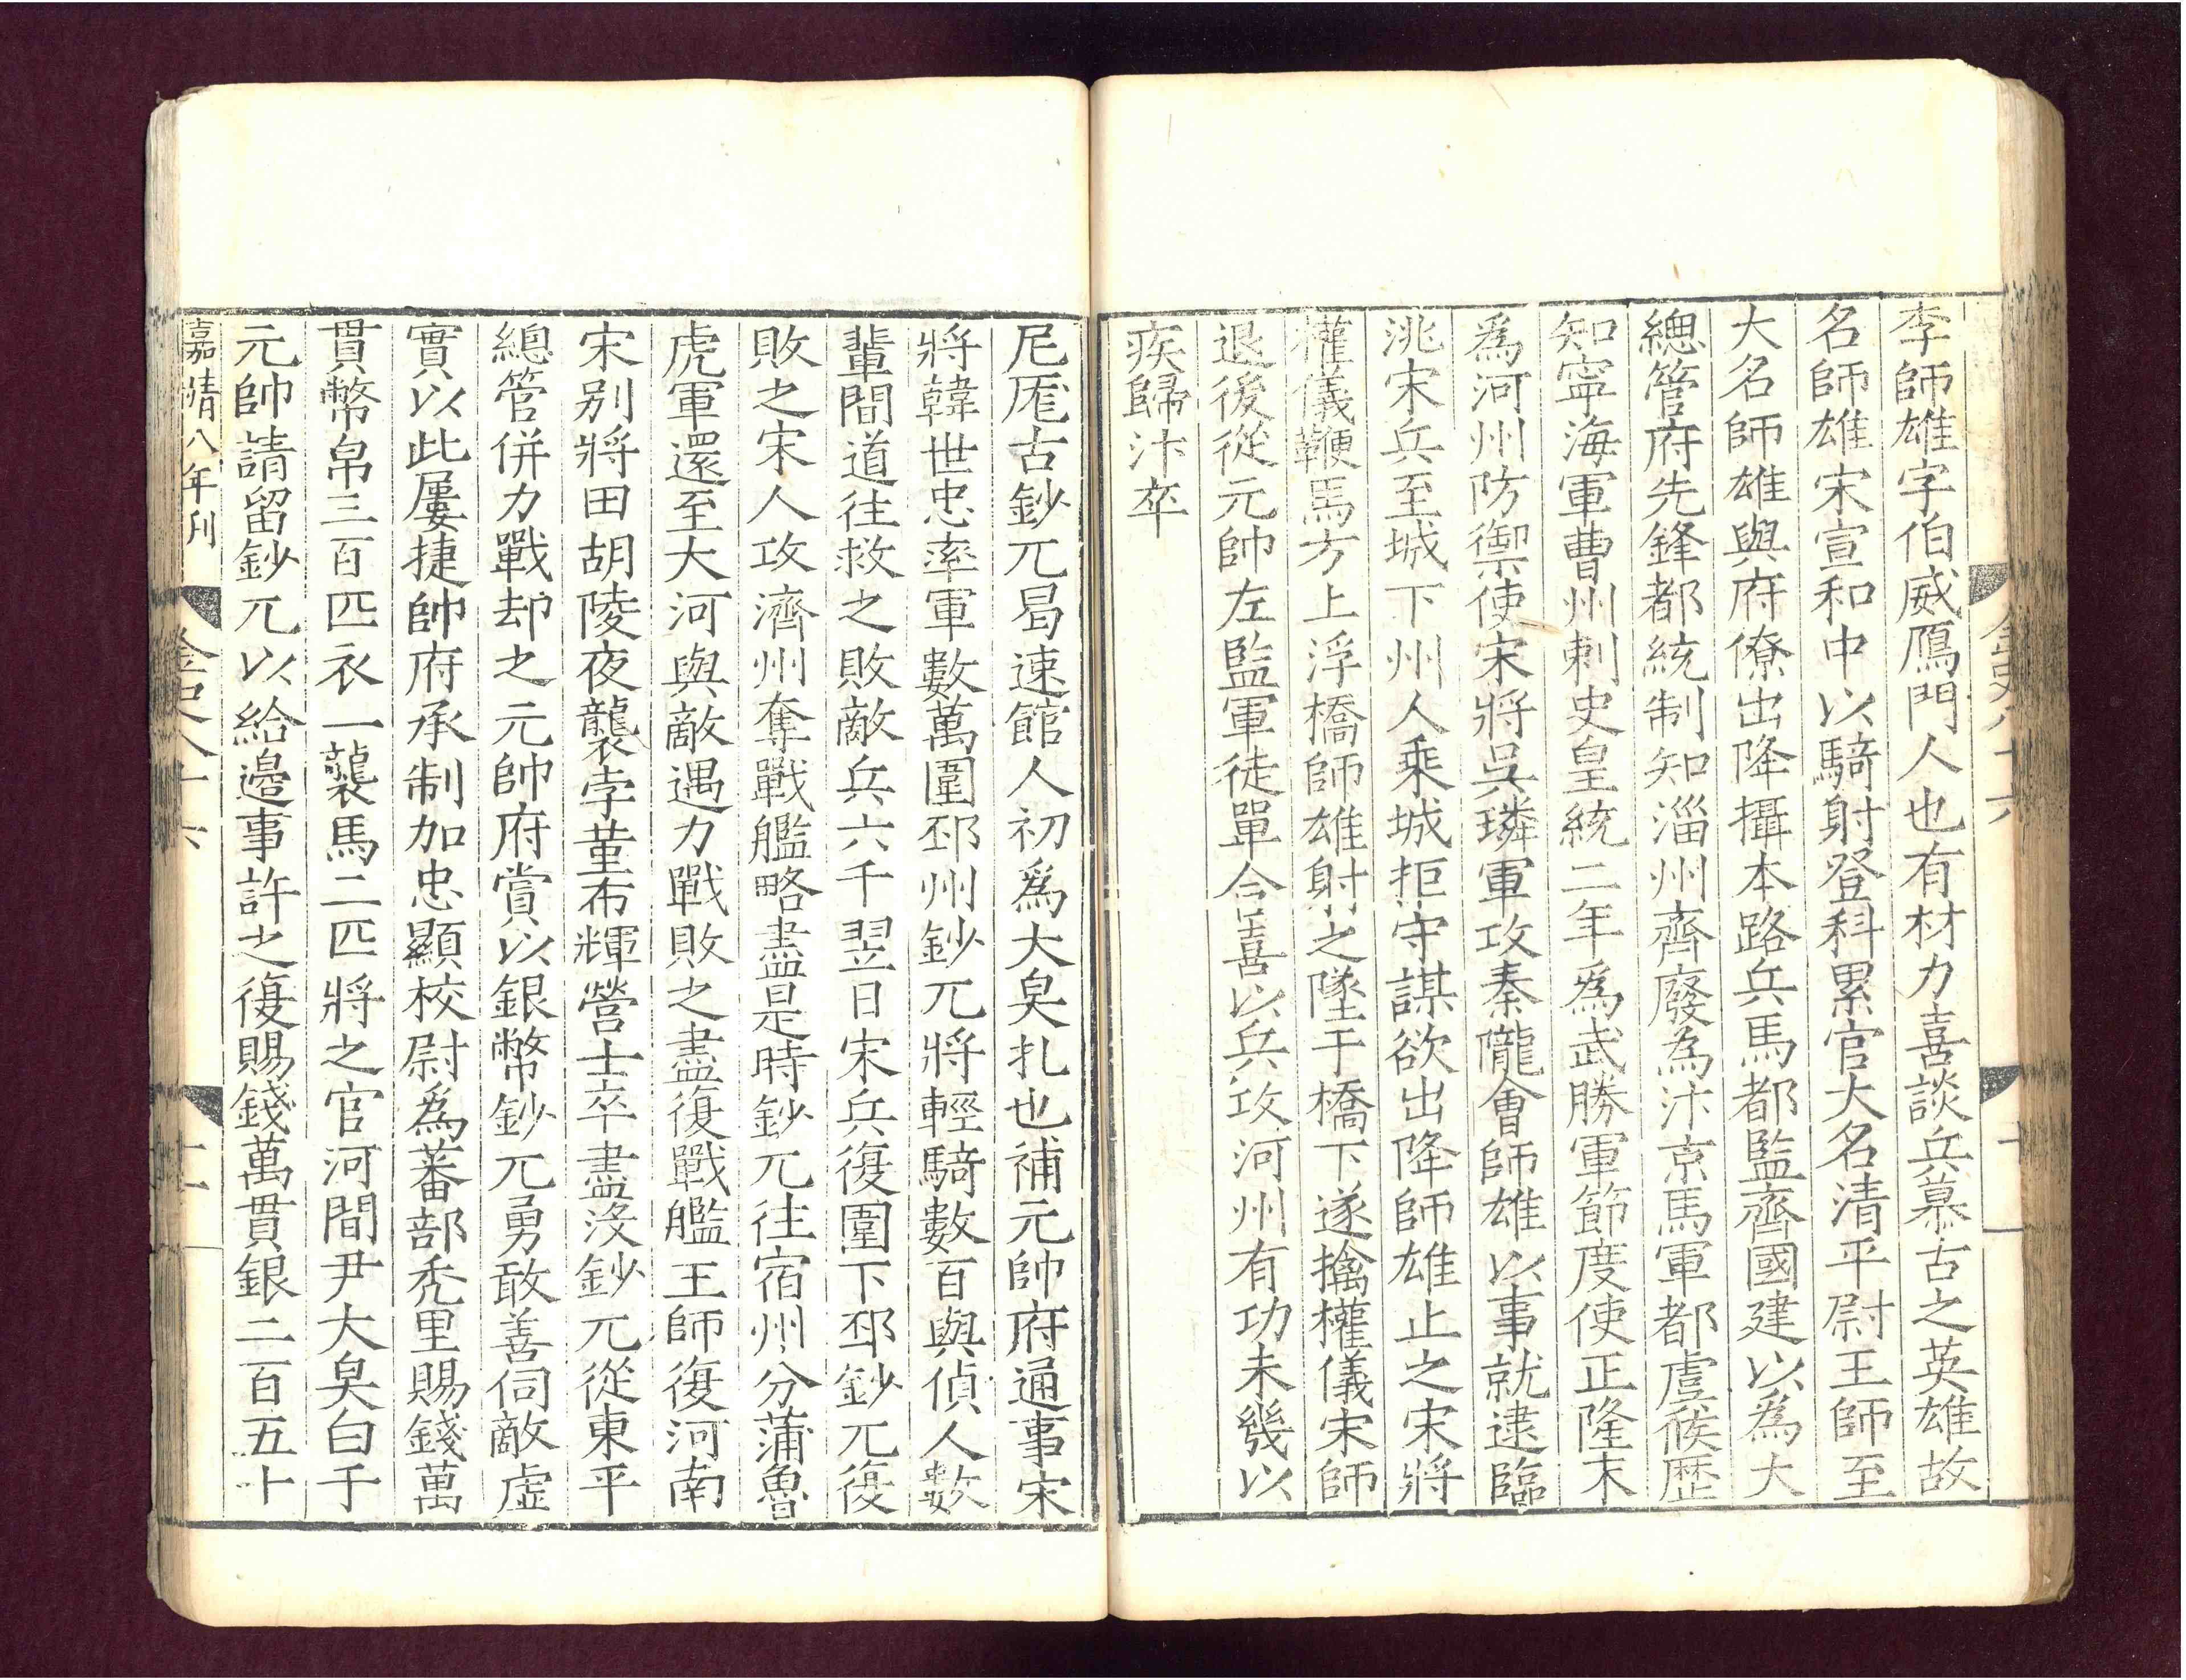 李師雄字伯威鴈門人也有材力喜談兵慕古之英雄故
名師雄宋宣和中以騎射登科累官大名清平尉王師至
大名師雄與府僚出降攝本路兵馬都監齊國建以爲大
總管府先鋒都統制知淄州齊廢爲汴京馬軍都虞候歷
知寧海軍曹州刺史皇統二年爲武勝軍節度使正隆末
爲河州防禦使宋將吳璘軍攻秦隴會師雄以事就逮臨
洮宋兵至城下州人乘城拒守謀欲出降師雄止之宋將
權儀鞭馬方上浮橋師雄射之墜于橋下遂擒權儀宋師
退後從元帥左監軍徒單合喜以兵攻河州有功未幾以
疾歸汴卒
金史八十六
十
尼厖古鈔兀曷速館人初爲大㚖扎也補元帥府通事宋
將韓世忠率軍數萬圍邳州鈔兀將輕騎數百與偵人數
輩間道往救之敗敵兵六千翌日宋兵復圍下邳鈔兀復
敗之宋人攻濟州奪戰艦略盡是時鈔兀往宿州分蒲魯
虎軍還至大河與敵遇力戰敗之盡復戰艦王師復河南
宋别將田胡陵夜襲孛堇布輝營士卒盡沒鈔兀從東平
總管併力戰却之元帥府賞以銀幣鈔兀勇敢善伺敵虛
實以此屢捷帥府承制加忠顯校尉爲蕃部禿里賜錢萬
貫幣帛三百匹衣一襲馬二匹將之官河間尹大㚖白于
元帥請留鈔兀以給邊事許之復賜錢萬貫銀二百五十
嘉靖八年刊
金史八十六
十一